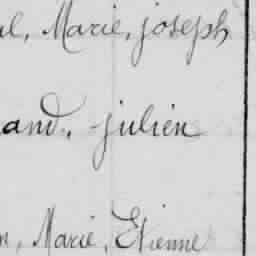 al, Marie, joseph
and, julien
n, Marie, Etienne